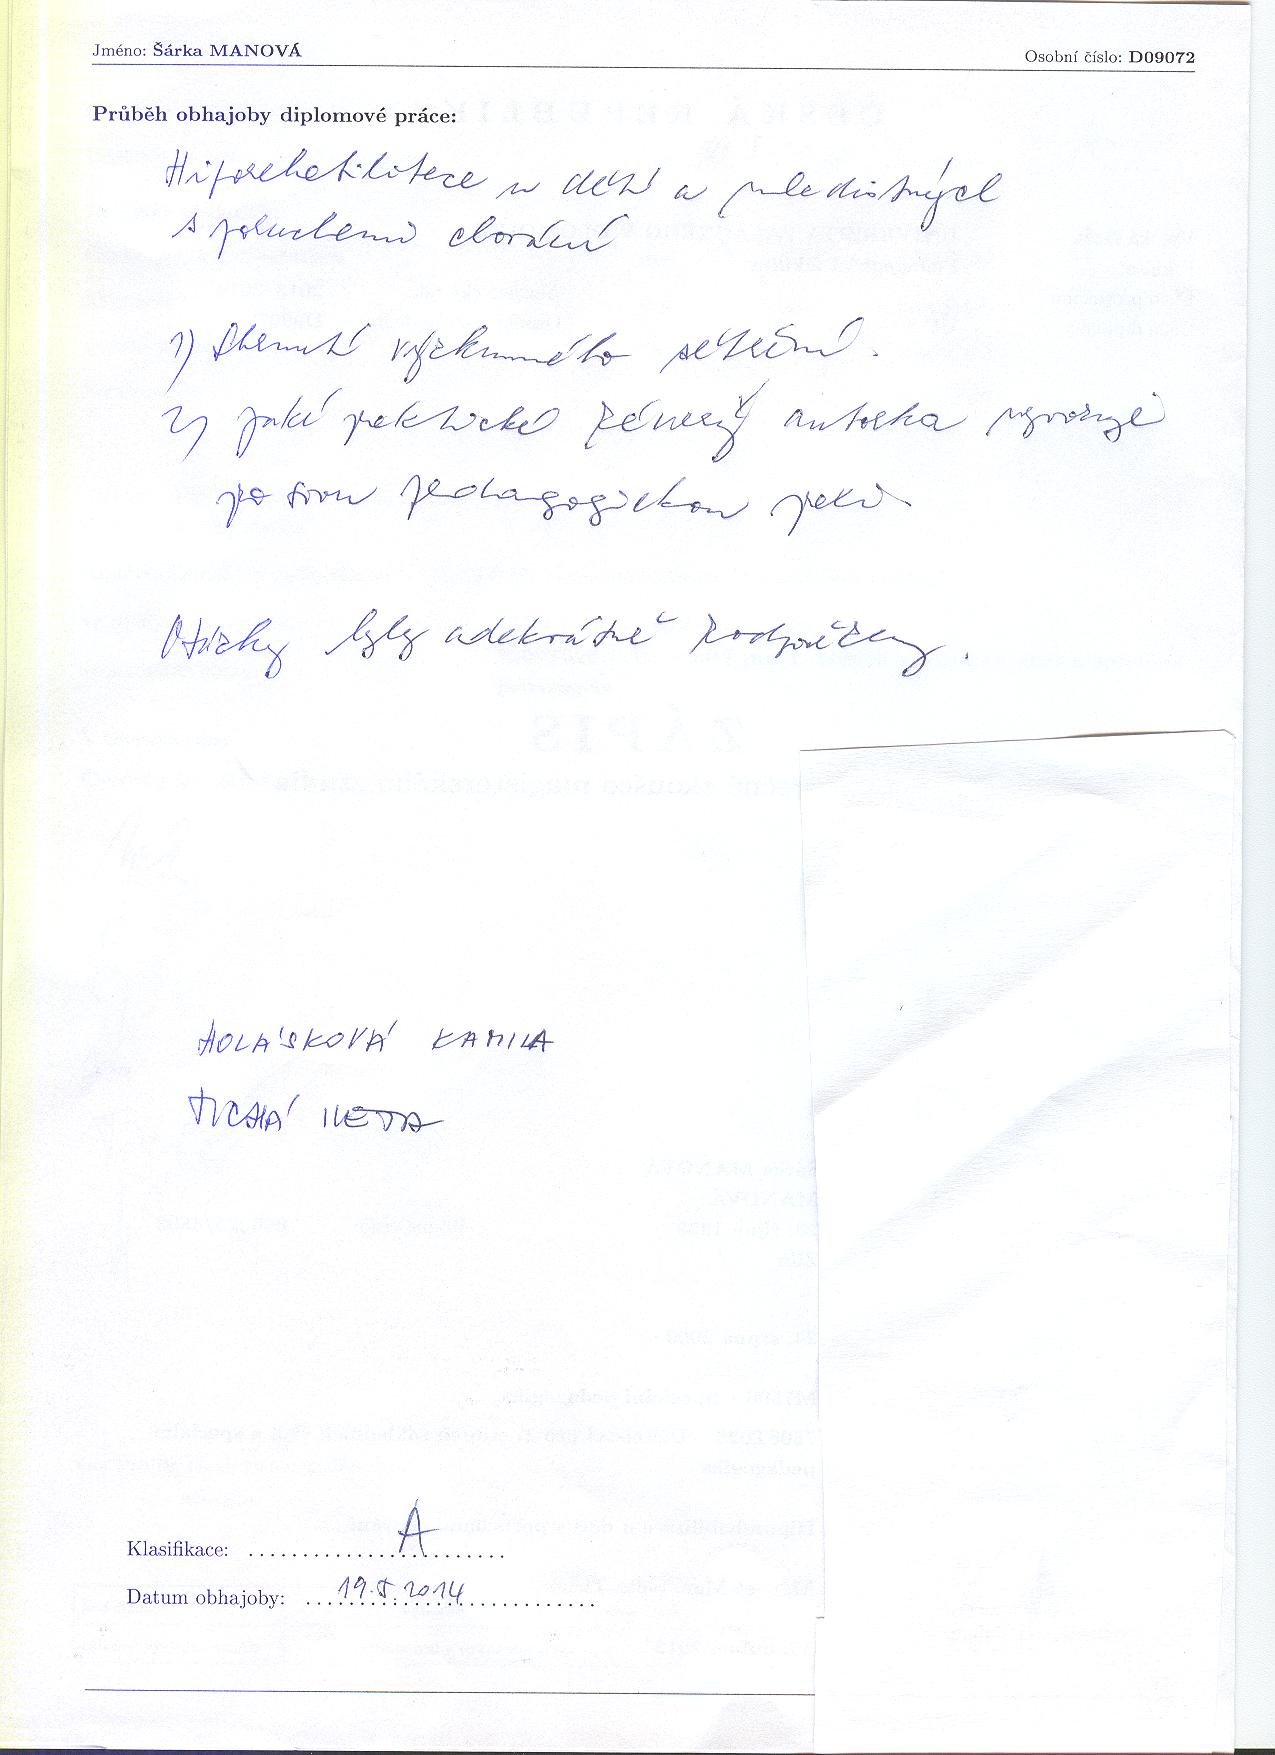 Jméno: Šárka MANOVÁ
Osobní číslo: D09072
Průběh obhajoby diplomové práce:
Hiporehabilitace u dětí a mladistvých
s poruchami chování
1) výzkumného šetření.
2) jaké praktické závěry autorka vyvozuje
pro svou pedagogickou praxi
Otázky byly adekvátně zodpovězeny.
ZÁPIS
HOLÁSKOVÁ KAMILA
TUCHÁ IVETA
Klasifikace: A
Datum obhajoby: 19.5.2014